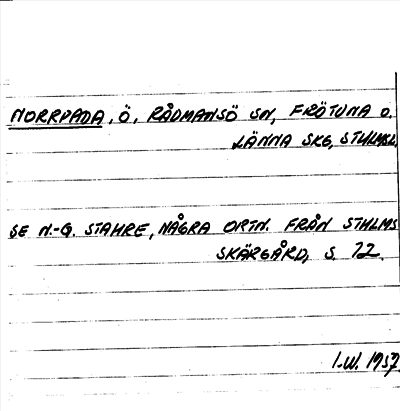 NORRPADA, Ö, RÅDMANSÖ SN, FRÖTUNA O.
LÄNNA SKG, STHLMSL.
SE N.-G. STAHRE, NÅGRA ORTN. FRÅN STHLMS
SKÄRGÅRD, S. 72.
I.W. 1957